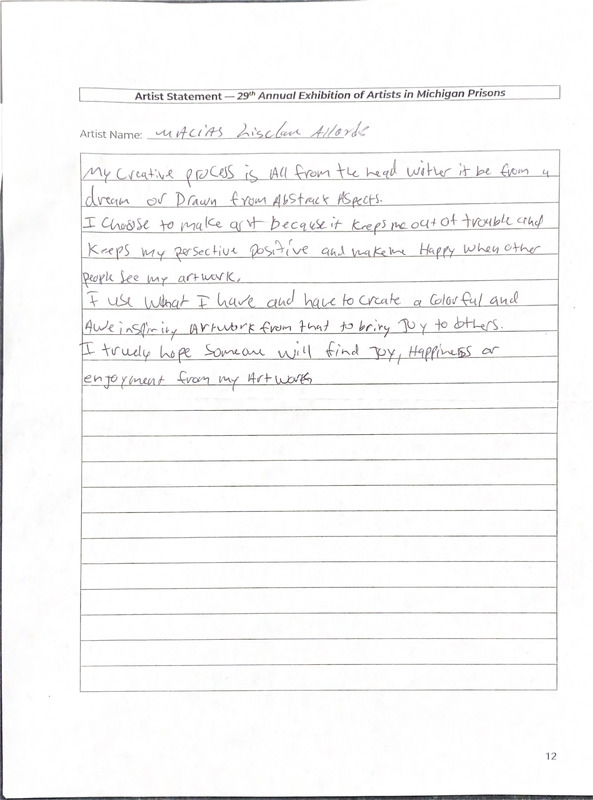 Artist Statement — 29th Annual Exhibition of Artists in Michigan Prisons
Artist Name: MACIAS
My Creative process is All from the head wither it be from a
dream or Drawn from Abstrack Aspects.
I Choose to make art because it Keeps me out of trouble and
Keeps my persective positive and make me Happy when other
people see my artwork.
I use What I have and have to Create a Colorful and
Awe inspiring Artwork from that to bring Joy to others.
I truely hope Someone will find Joy, Happiness or
enjoyment from my Artwork
12